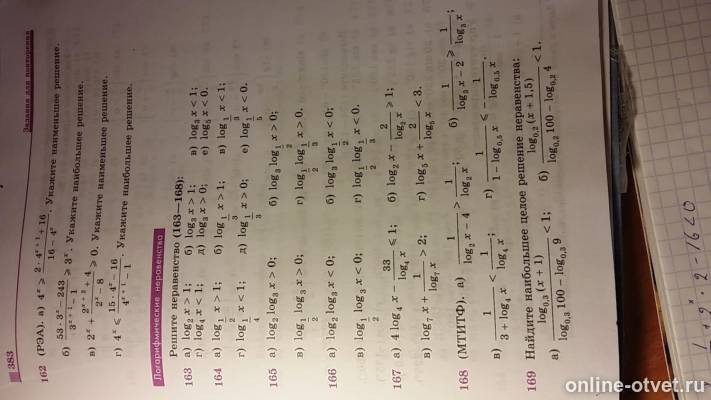 383
Задания для повторения
162 (РЭА). а) 4ˣ ≥ (2 · 4ˣ⁺¹ + 16)/(16 − 4ˣ). Укажите наименьшее решение.
б) (53 · 3ˣ − 243)/(3ˣ⁺⁴ − 1) ≥ 3ˣ. Укажите наибольшее решение.
в) 2ˣ + (2ˣ⁺¹ + 4)/(2ˣ − 8) ≥ 0. Укажите наименьшее решение.
г) 4ˣ ≤ (15 · 4ˣ − 16)/(4ˣ⁺¹ − 1). Укажите наибольшее решение.
Логарифмические неравенства
Решите неравенство (163—168):
163 а) log₂ x > 1; б) log₃ x > 1; в) log₃ x < 1;
г) log₄ x < 1; д) log₃ x > 0; е) log₅ x < 0.
164 а) log_{1/2} x > 1; б) log_{1/3} x > 1; в) log_{1/3} x < 1;
г) log_{1/4} x < 1; д) log_{1/3} x > 0; е) log_{1/5} x < 0.
165 а) log₂ log₃ x > 0; б) log₃ log_{1/2} x > 0;
в) log_{1/2} log₃ x > 0; г) log_{1/2} log_{1/3} x > 0.
166 а) log₂ log₃ x < 0; б) log₃ log_{1/2} x < 0;
в) log_{1/2} log₃ x < 0; г) log_{1/2} log_{1/3} x < 0.
167 а) 4 log₄ x − 33/(log₄ x) ≤ 1; б) log₂ x − 2/(log₂ x) ≥ 1;
в) log₇ x + 1/(log₇ x) > 2; г) log₅ x + 2/(log₅ x) < 3.
168 (МТИТФ). а) 1/(log₂ x − 4) > 1/(log₂ x); б) 1/(log₃ x − 2) ≥ 1/(log₃ x);
в) 1/(3 + log₄ x) < 1/(log₄ x); г) 1/(1 − log₀,₅ x) ≤ − 1/(log₀,₅ x).
169 Найдите наибольшее целое решение неравенства:
а) (log₀,₃ (x + 1))/(log₀,₃ 100 − log₀,₃ 9) < 1; б) (log₀,₂ (x + 1,5))/(log₀,₂ 100 − log₀,₂ 4) < 1.
online-otvet.ru